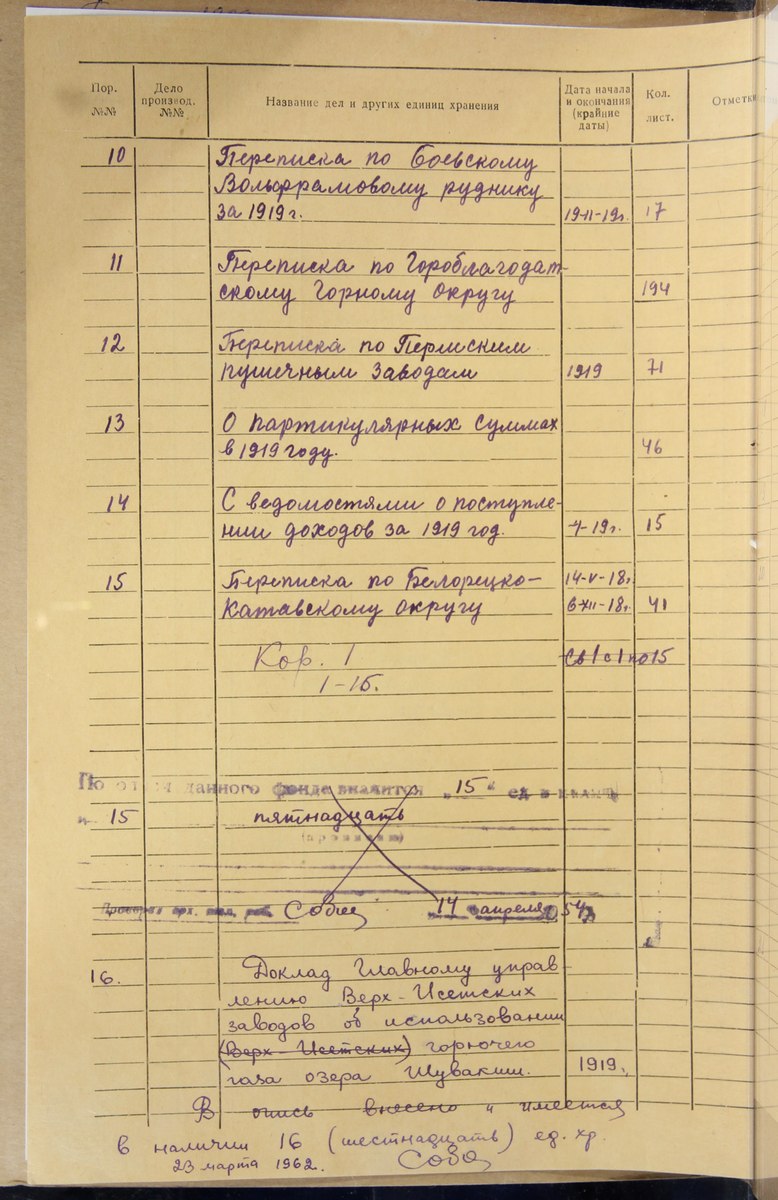 Пор. №№ Дело производ. №№ Название дел и других единиц хранения Дата начала и окончания (крайние даты) Кол. лист. Отметки
10 Переписка по Боевскому
Вольфрамовому руднику
за 1919 г. 19-II-19г. 17
11 Переписка по Гороблагодат-
скому Горному Округу 194
12 Переписка по Пермским
пушечным заводам 1919 71
13 О партикулярных суммах
в 1919 году. 46
14 С ведомостями о поступле-
нии доходов за 1919 год. 19г. 15
15 Переписка по Белорецко- 14-V-18г.
Катавскому Округу 6-XII-18г. 41
Кор. 1 Св 1 с 1 по 15
1-15.
По данного фонда "15" ед
15 пятнадцать
14 апреля 54
16. Доклад Главному управ-
лению Верх-Исетских
заводов об использовании
(Верх-Исетских) горючего
газа озера Шувакиш. 1919.
В опись внесено и имеется
в наличии 16 (шестнадцать) ед. хр.
23 марта 1962.